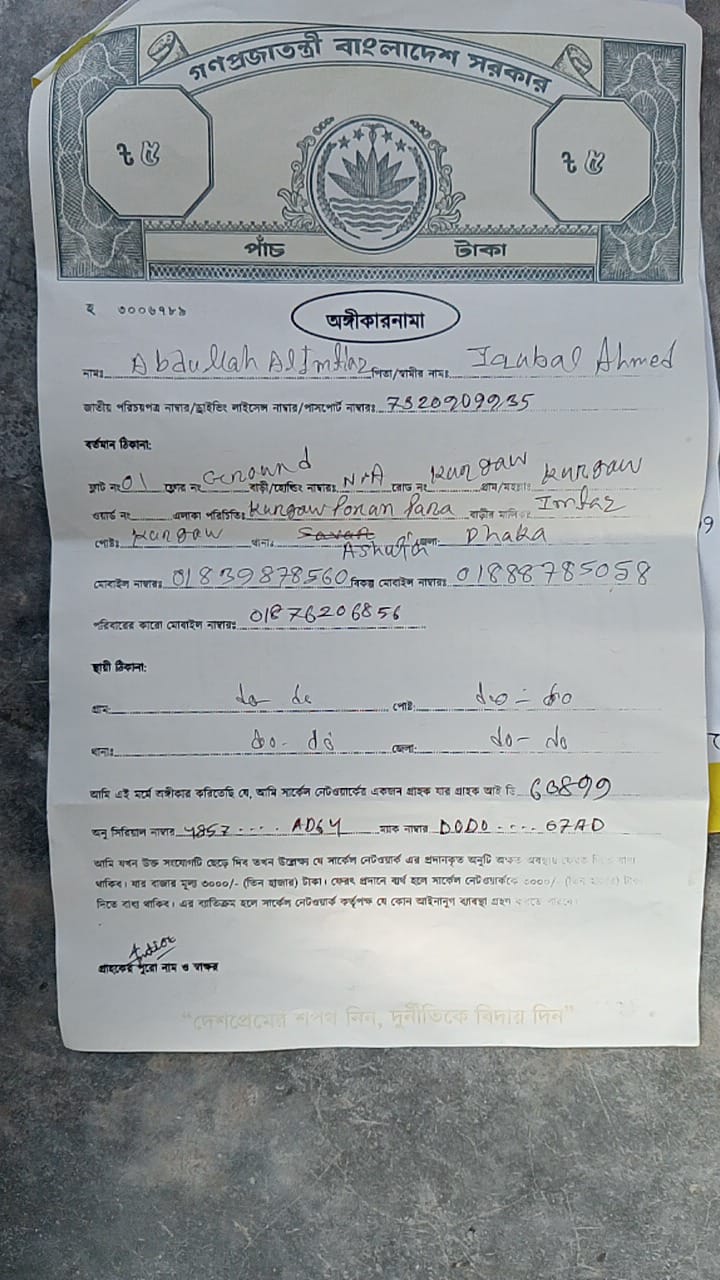 গণপ্রজাতন্ত্রী বাংলাদেশ সরকার
৳ ৫ ৳ ৫
পাঁচ টাকা
হ ৩০০৬৭৮৯
অঙ্গীকারনামা
নামঃ Abdullah Al Imtiaz পিতা/স্বামীর নামঃ Iqubal Ahmed
জাতীয় পরিচয়পত্র নাম্বার/ড্রাইভিং লাইসেন্স নাম্বার/পাসপোর্ট নাম্বারঃ 7320909235
বর্তমান ঠিকানা:
ফ্ল্যাট নং 01 ফ্লোর নং Ground বাড়ী/হোল্ডিং নাম্বারঃ N/A রোড নং Kurgaw গ্রাম/মহল্লাঃ Kurgaw
ওয়ার্ড নং এলাকা পরিচিতিঃ Kurgaw Poran Para বাড়ীর মালিকঃ Imtiaz
পোষ্টঃ Kurgaw থানাঃ Savar Ashulia জেলা: Dhaka
মোবাইল নাম্বারঃ 01839878560 বিকল্প মোবাইল নাম্বারঃ 01888785058
পরিবারের কারো মোবাইল নাম্বারঃ 01876206856
স্থায়ী ঠিকানা:
গ্রামঃ do- do পোষ্ট: do - do
থানাঃ do- do জেলা: do- do
আমি এই মর্মে অঙ্গীকার করিতেছি যে, আমি সার্কেল নেটওয়ার্কের একজন গ্রাহক যার গ্রাহক আই ডি 63899
অনু সিরিয়াল নাম্বার 4857 .... AD64 ম্যাক নাম্বার D0D0 .... 67AD
আমি যখন উক্ত সংযোগটি ছেড়ে দিব তখন উল্লেক্ষ্য যে সার্কেল নেটওয়ার্ক এর প্রদানকৃত অনুটি অক্ষত অবস্থায় ফেরত দিতে বাধ্য
থাকিব। যার বাজার মূল্য ৩০০০/- (তিন হাজার) টাকা। ফেরৎ প্রদানে ব্যর্থ হলে সার্কেল নেটওয়ার্ককে ৩০০০/- (তিন হাজার) টাকা
দিতে বাধ্য থাকিব। এর ব্যতিক্রম হলে সার্কেল নেটওয়ার্ক কর্তৃপক্ষ যে কোন আইনানুগ ব্যবস্থা গ্রহণ করতে পারবে।
গ্রাহকের পুরো নাম ও স্বাক্ষর
“দেশপ্রেমের শপথ নিন, দুর্নীতিকে বিদায় দিন”